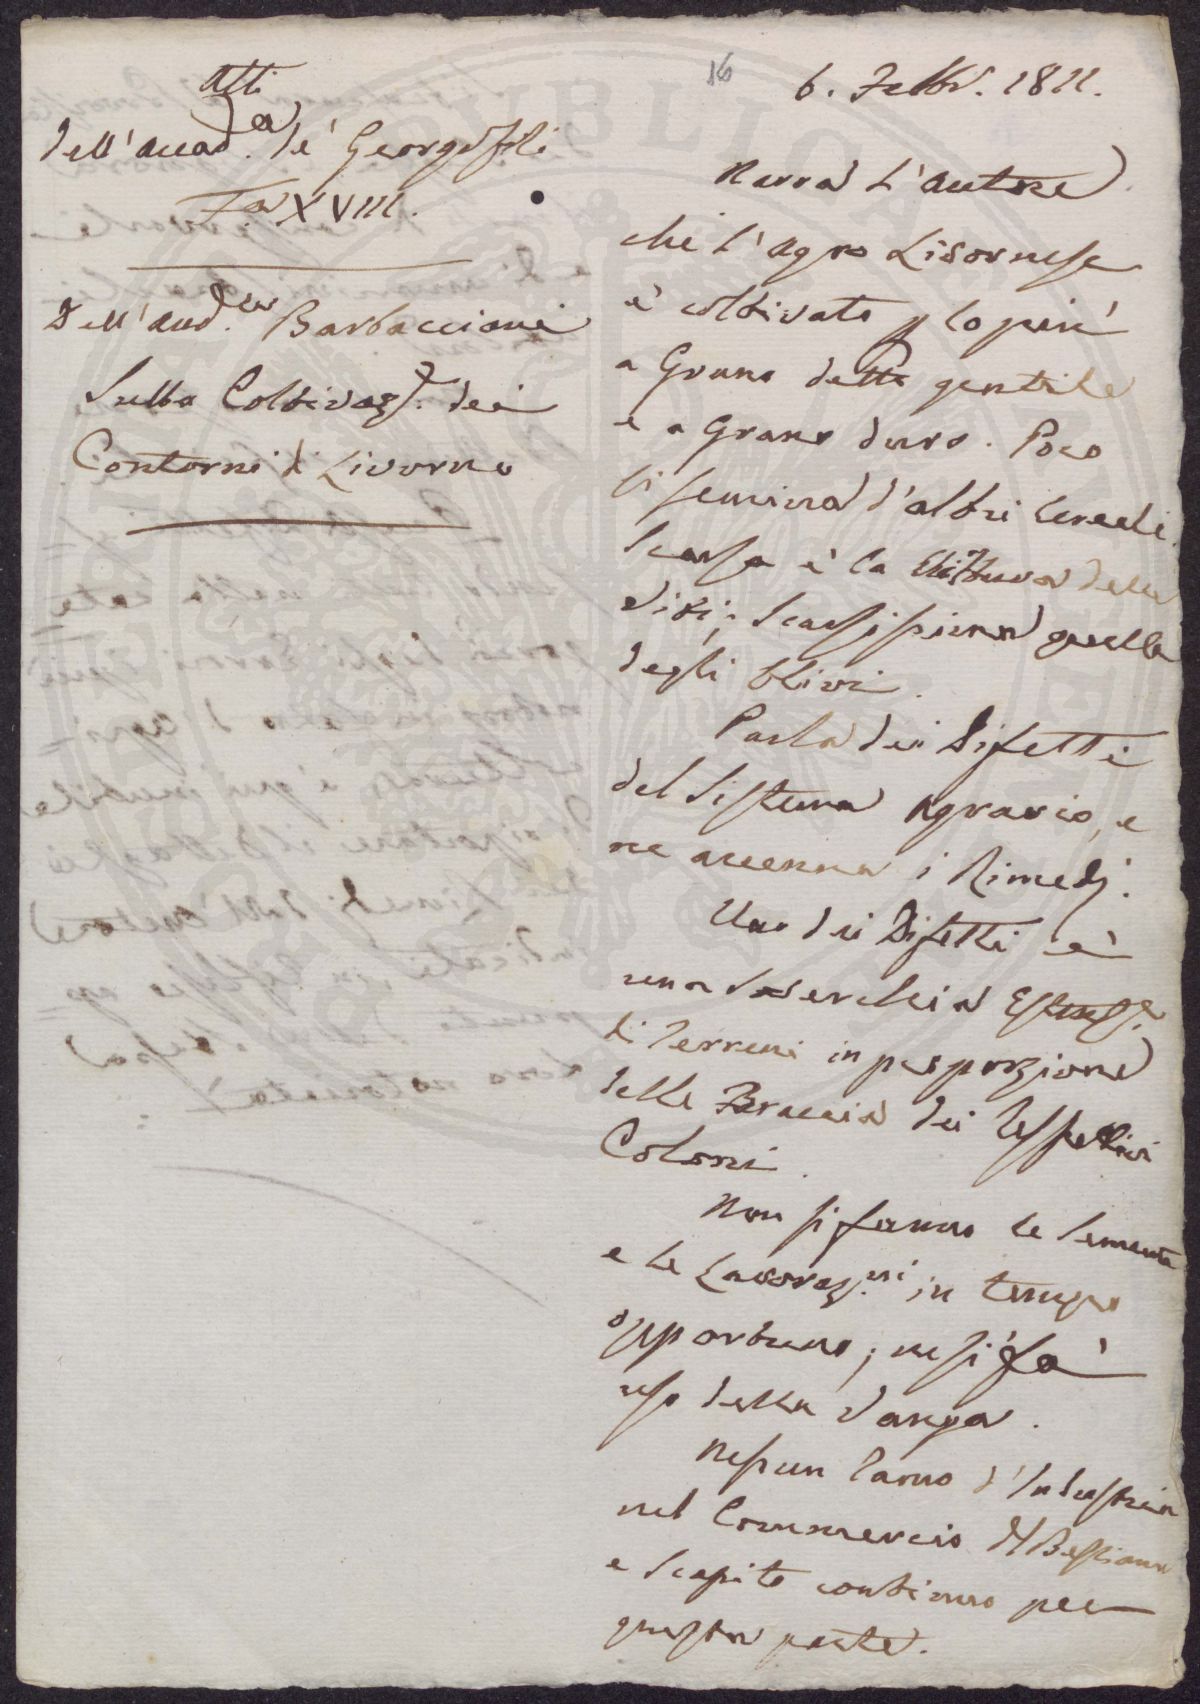 Atti
dell'Accad.a de' Georgofili
T.o XVIII.
Dell'Aud.re Barbacciani
Sulla Coltivaz.e dei
Contorni di Livorno
16
6. Febbr. 1811.
Narra l'Autore
che l'Agro Livornese
è coltivato p lo più
a Grano detto gentile
e a Grano duro. Poco
si semina d'altri Cereali.
Scarsa è la Cultura delle
Viti; scarsissima quella
degli Olivi.
Parla dei Difetti
del Sistema Agrario, e
ne accenna i Rimedj.
Uno dei Difetti è
una soverchia Estens.e
di Terreni in proporzione
delle Braccia dei respettivi
Coloni.
Non si fanno le sementa
e le Lavoraz.ni in tempo
opportuno; ne si fà
uso della Vanga.
Nessun ramo d'Industria
nel Commercio del Bestiame
e scapito continuo per
questa parte.